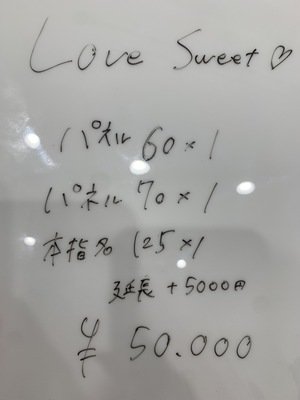 Love Sweet♡
パネル 60×1
パネル 70×1
本指名 125×1
延長 +5000円
¥ 50.000